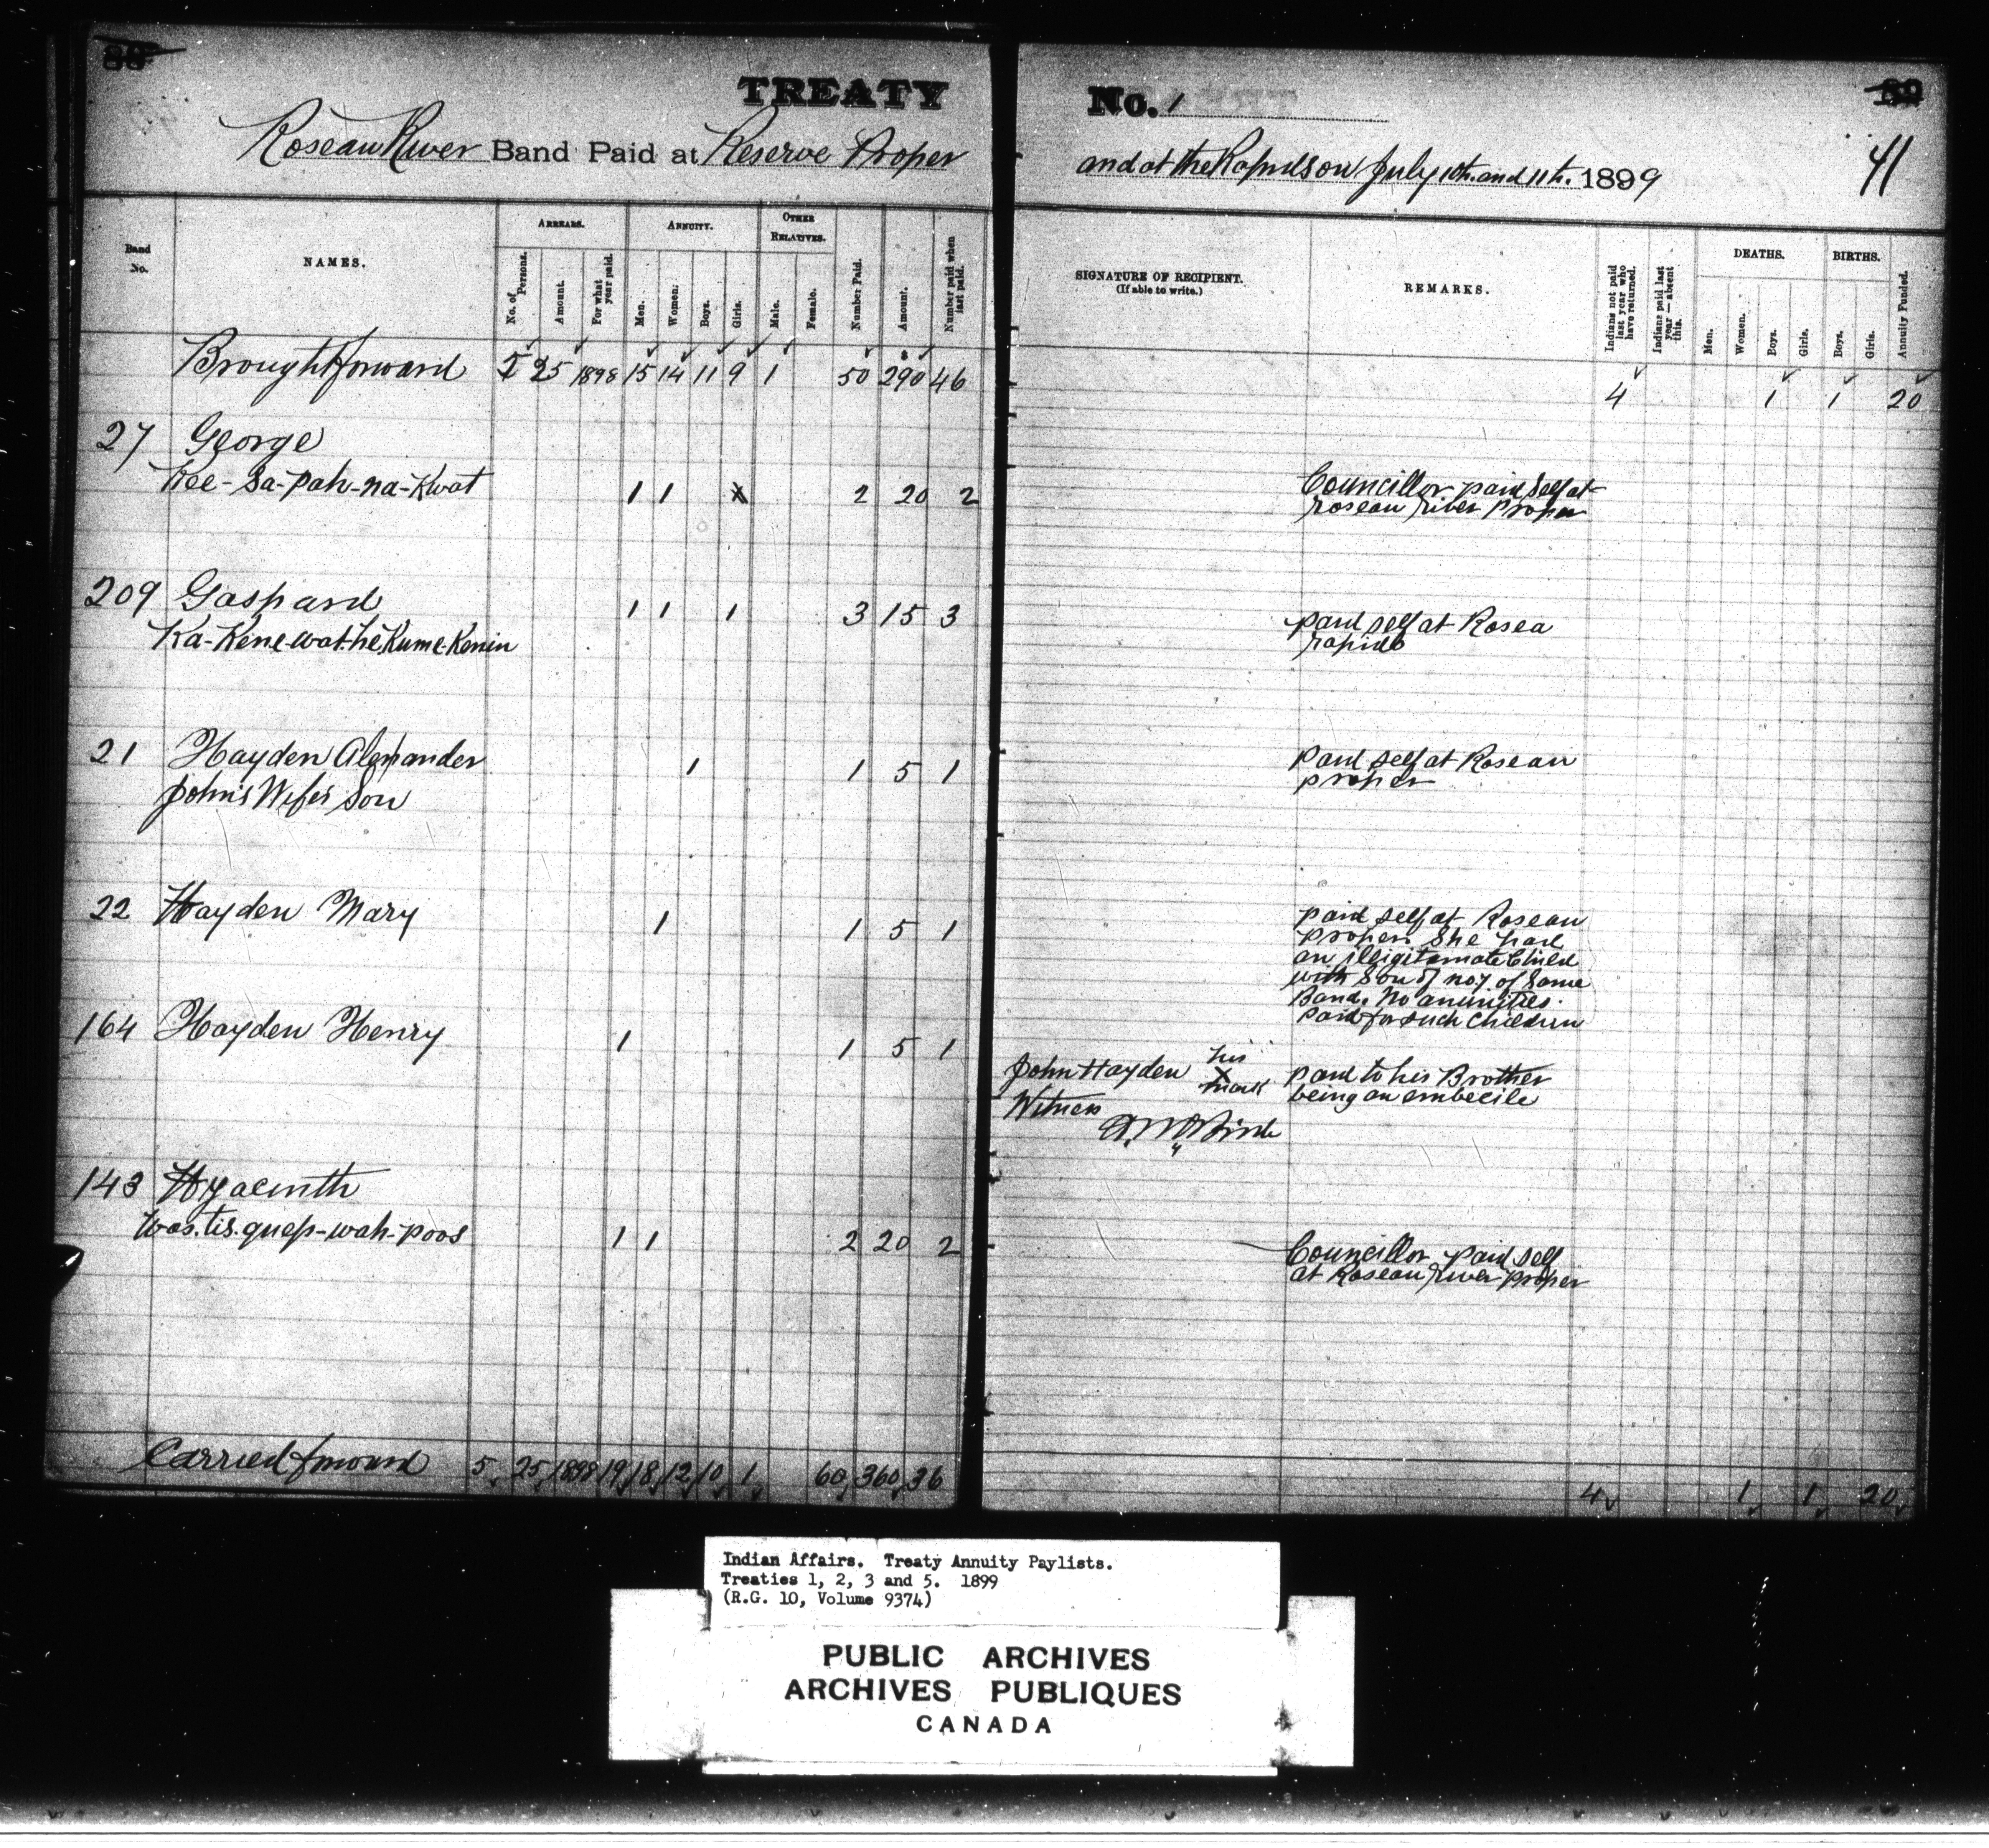 88
TREATY No. 1
89
41
Roseau River Band Paid at Reserve Proper and at the Rapids on July 10th. and 11th. 1899
Band No.
NAMES.
ARREARS.
No. of Persons.
Amount.
For what year paid.
ANNUITY.
Men.
Women.
Boys.
Girls.
OTHER RELATIVES.
Male.
Female.
Number Paid.
Amount.
Number paid when last paid.
SIGNATURE OF RECIPIENT.
(If able to write.)
REMARKS.
Indians not paid last year who have returned.
Indians paid last year—absent this.
DEATHS.
Men.
Women.
Boys.
Girls.
BIRTHS.
Boys.
Girls.
Annuity Funded.
Brought forward 5 25 1898 15 14 11 9 1 50 290 46 4 1 1 20
27 George
Kee-sa-pah-na-Kwat 1 1 2 20 2 Councillor paid self at
roseau river proper
209 Gaspard 1 1 1 3 15 3 paid self at Rosea
Ka-Kene-wat-he-Kume-Kenin rapids
21 Hayden Alexander 1 1 5 1 paid self at Roseau
John's Wife's Son proper
22 Hayden Mary 1 1 5 1 paid self at Roseau
proper. She had
an illigitamate Child
with Son of no 7 of Same
Band. No anunities.
paid for such Children
164 Hayden Henry 1 1 5 1
John Hayden his X mark paid to his Brother
being an embecile
Witness
143 Hyacinth
Was.tis.quep-wah-poos 1 1 2 20 2 Councillor paid self
at Roseau river proper
Carried forward 5 25 1898 19 18 12 10 1 60 360 36 4 1 1 20
Indian Affairs. Treaty Annuity Paylists.
Treaties 1, 2, 3 and 5. 1899
(R.G. 10, Volume 9374)
PUBLIC ARCHIVES
ARCHIVES PUBLIQUES
CANADA